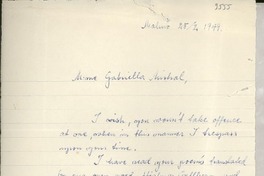 3555
Malmö 28/2 1949
Mme Gabriella Mistral,
I wish, you wount take offence
at one when in this manner I trespass
upon your time.
I have read your poems translated
by